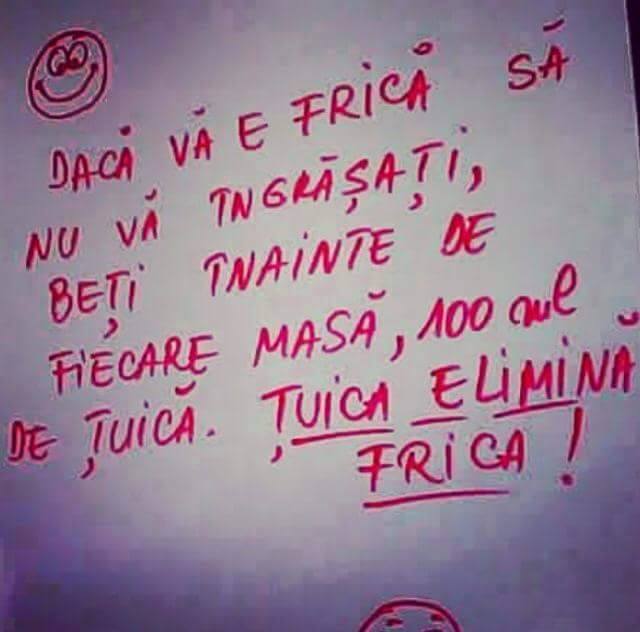 DACĂ VĂ E FRICĂ SĂ
NU VĂ ÎNGRĂȘAȚI,
BEȚI ÎNAINTE DE
FIECARE MASĂ, 100 ml
DE ȚUICĂ. ȚUICA ELIMINĂ
FRICA!